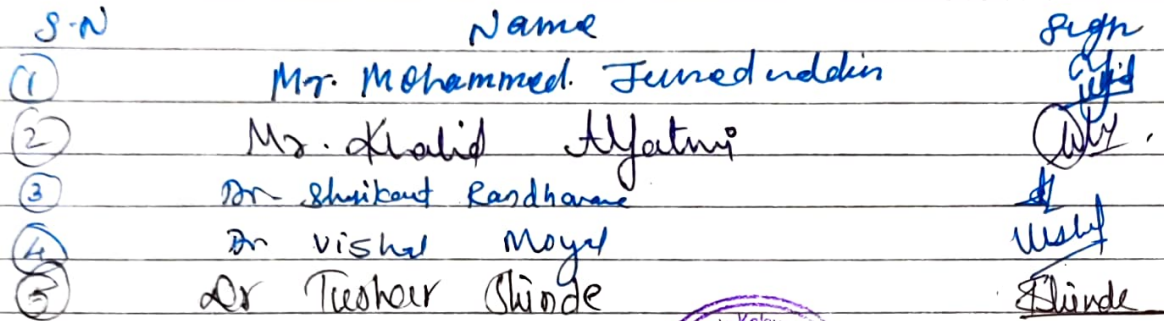 S.N Name Sign
1 Mr. Mohammed. Junaeduddin
2 Mr. Khalid Alfatmi
3 Dr Shrikant Randhavane
4 Dr Vishal Moyal Vishal
5 Dr Tushar Shinde Shinde